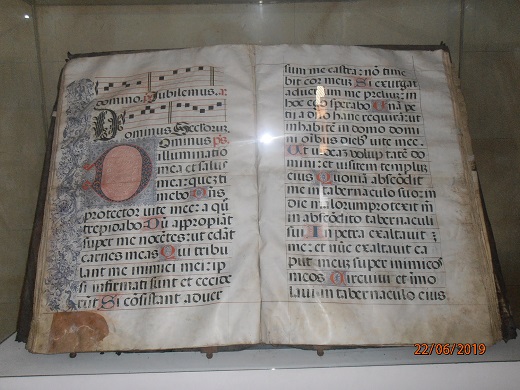 domino. Jubilemus. a:
Dominus defensor.
Dominus ps.
illuminatio
mea et salus
mea: quez ti
mebo Dñs
protector uite mee: a qũ
trepidabo Dũ appropiãt
super me nocẽtes: ut edãt
carnes meas Qui tribu
lant me inimici mei: ip
si infirmati sunt et cecide
rũt Si cõsistant aduer
sum me castra: nõ time
bit cor meuz Si exurgat
aduersum me prelium: in
hoc ego sperabo Unã pe
tij a dño hanc requirã: ut
inhabitẽ in domo domi
ni oĩbus dieb' uite mee
Ut uideaz uolup tatẽ do
mini: et uisitem templuz
eius Quoniã abscõdit
me in tabernaculo suo: in
die malorum protexit m
in abscõdito tabernaculi
sui In petra exaltauit z
me: et nũc exaltauit ca
put meuz super inimicos
meos Circuiui et imo
laui in tabernaculo eius
22/06/2019